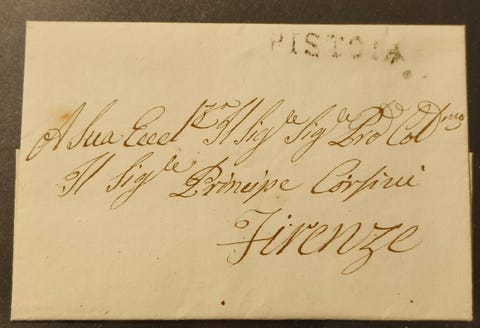 PISTOIA
A Sua Eccel.za Il Sig.re Sig.re Pro.ne Col.mo
Il Sig.le Principe Corsini
Firenze